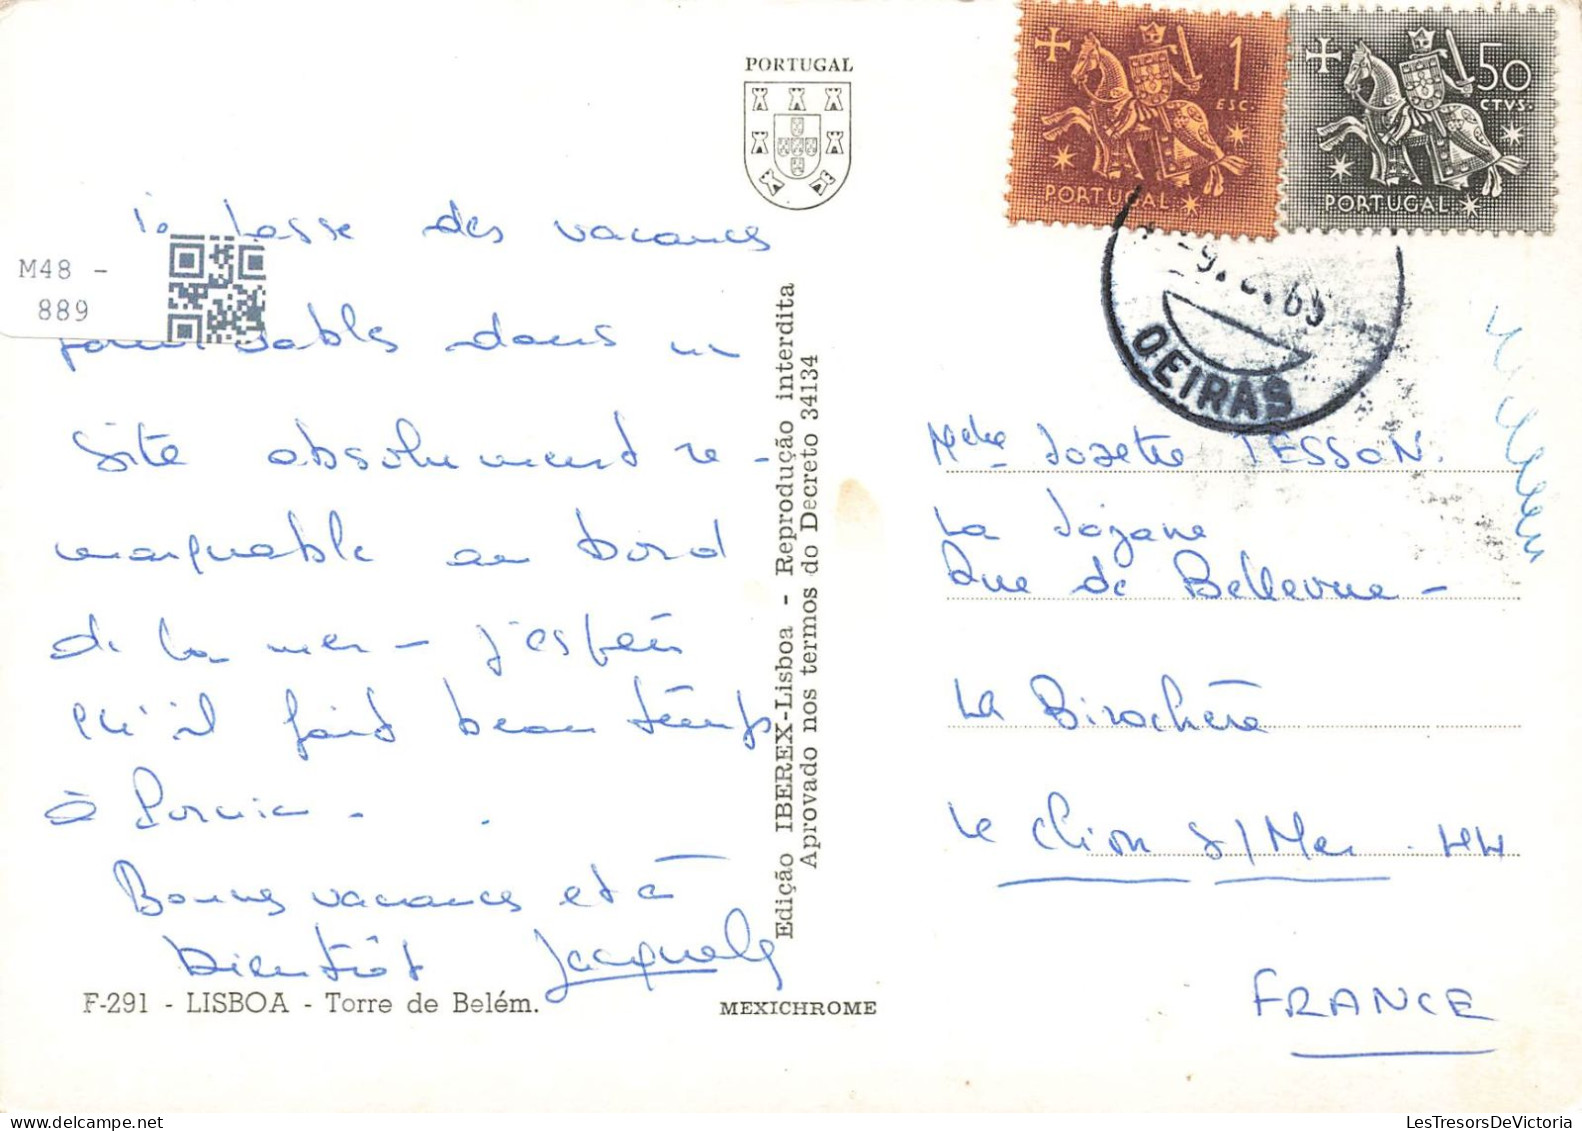 PORTUGAL
1
ESC.
PORTUGAL
50
CTVS.
PORTUGAL
OEIRAS
M48 -
889
passe des vacances
dans un
site absolument re-
marquable au bord
de la mer - j'espère
qu'il fait beau temps
à Pornic -
Bonnes vacances et à
bientôt Jacquely
F-291 - LISBOA - Torre de Belém.
MEXICHROME
Edição IBEREX-Lisboa - Reprodução interdita
Aprovado nos termos do Decreto 34134
Melle Josette TESSON.
La
Rue de Bellevue -
La Birochère
Le Clion s/Mer. 44
FRANCE
LesTresorsDeVictoria